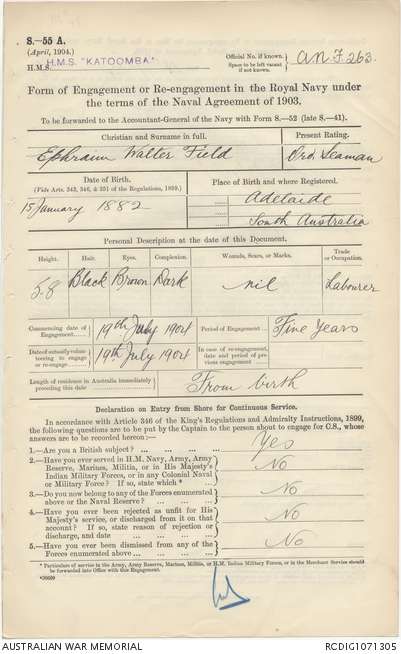 S.—55 A.
(April, 1904.)
H.M.S. "KATOOMBA"
H.M.S.
Official No. if known.
Space to be left vacant if not known.
A.N.F. 263.
Form of Engagement or Re-engagement in the Royal Navy under
the terms of the Naval Agreement of 1903.
To be forwarded to the Accountant-General of the Navy with Form S.—52 (late S.—41).
Christian and Surname in full. Present Rating.
Ephraim Walter Field Ord. Seaman
Date of Birth. Place of Birth and where Registered.
(Vide Arts. 343, 346, & 351 of the Regulations, 1899.)
15 January 1882 Adelaide
South Australia
Personal Description at the date of this Document.
Height. Hair. Eyes. Complexion. Wounds, Scars, or Marks. Trade or Occupation.
5.8 Black Brown Dark nil Labourer
Commencing date of Engagement 19th July 1904 Period of Engagement Five Years
Date of actually volunteering to engage or re-engage 19th July 1904 In case of re-engagement, date and period of previous engagement
Length of residence in Australia immediately preceding this date From birth
Declaration on Entry from Shore for Continuous Service.
In accordance with Article 346 of the King's Regulations and Admiralty Instructions, 1899,
the following questions are to be put by the Captain to the person about to engage for C.S., whose
answers are to be recorded hereon:—
1.—Are you a British subject? Yes
2.—Have you ever served in H.M. Navy, Army, Army
Reserve, Marines, Militia, or in His Majesty's
Indian Military Forces, or in any Colonial Naval
or Military Force? If so, state which * No
3.—Do you now belong to any of the Forces enumerated
above or the Naval Reserve? No
4.—Have you ever been rejected as unfit for His
Majesty's service, or discharged from it on that
account? If so, state reason of rejection or
discharge, and date No
5.—Have you ever been dismissed from any of the
Forces enumerated above No
* Particulars of service in the Army, Army Reserve, Marines, Militia, or H.M. Indian Military Forces, or in the Merchant Service should
be forwarded into Office with this Engagement.
AUSTRALIAN WAR MEMORIAL RCDIG1071305